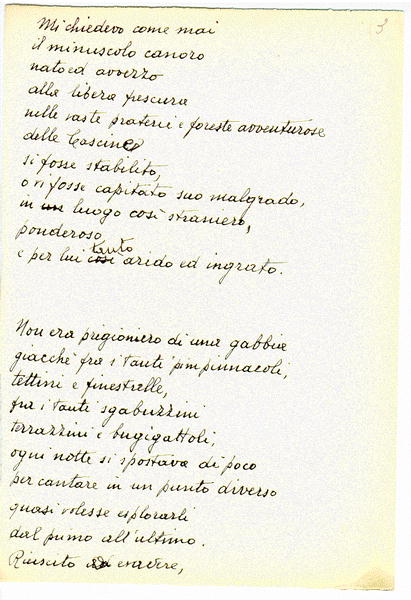 3
Mi chiedevo come mai
il minuscolo canoro
nato ed avvezzo
alla libera frescura
nelle vaste praterie e foreste avventurose
delle Cascine
si fosse stabilito,
o vi fosse capitato suo malgrado,
in un luogo così straniero,
ponderoso
e per lui così tanto arido ed ingrato.
Non era prigioniero di una gabbia
giacché fra i tanti pimpinnacoli,
tettini e finestrelle,
fra i tanti sgabuzzini
terrazzini e bugigattoli,
ogni notte si spostava di poco
per cantare in un punto diverso
quasi volesse esplorarli
dal primo all'ultimo.
Riuscito ad evadere,